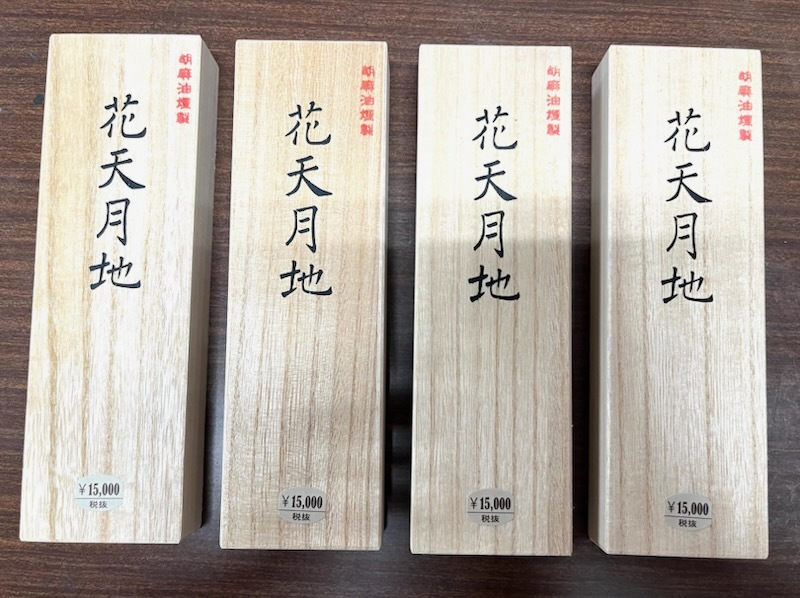 胡麻油煙製
花天月地
¥15,000
税抜
胡麻油煙製
花天月地
¥15,000
税抜
胡麻油煙製
花天月地
¥15,000
税抜
胡麻油煙製
花天月地
¥15,000
税抜